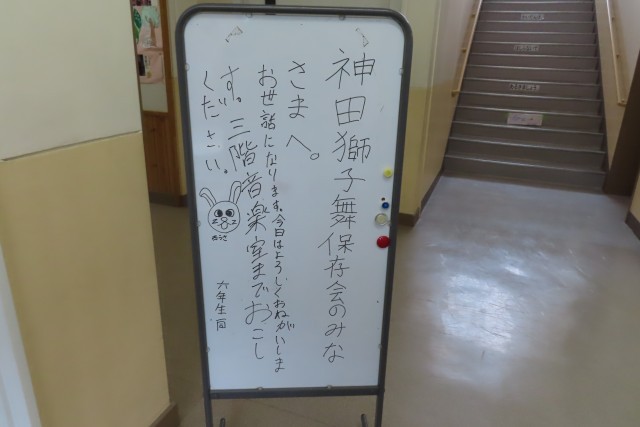 神田獅子舞保存会のみな
さまへ。
お世話になります。今日はよろしくおねがいしま
す。三階音楽室までおこし
ください。
うさ
六年生一同